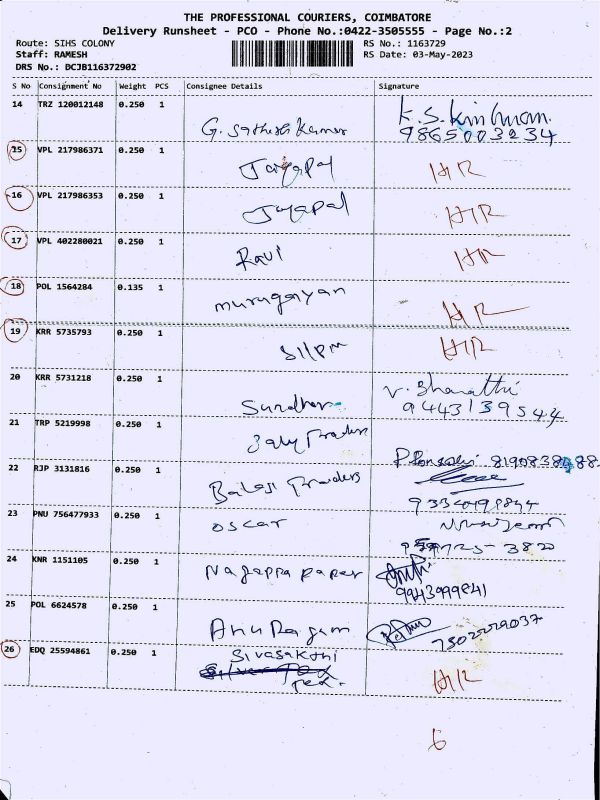 THE PROFESSIONAL COURIERS, COIMBATORE
Delivery Runsheet - PCO - Phone No.:0422-3505555 - Page No.:2
Route: SIHS COLONY RS No.: 1163729
Staff: RAMESH RS Date: 03-May-2023
DRS No.: DCJB116372902
S No Consignment No Weight PCS Consignee Details Signature
14 TRZ 120012148 0.250 1 G. Sathish Kumar K.S.
9865003234
15 VPL 217986371 0.250 1 Jayapal HR
16 VPL 217986353 0.250 1 Jayapal HR
17 VPL 402280021 0.250 1 Ravi HR
18 POL 1564284 0.135 1 murugaiyan HR
19 KRR 5735793 0.250 1 HR
20 KRR 5731218 0.250 1 Sundhar V. Bharathi
9443139544
21 TRP 5219998 0.250 1 Traders
22 RJP 3131816 0.250 1 Balaji Traders
23 PNU 756477933 0.250 1 oscar
24 KNR 1151105 0.250 1 Nagappa paper
9943999841
25 POL 6624578 0.250 1 Anuragam 7502229037
26 EDQ 25594861 0.250 1 Sivasakthi HR
6